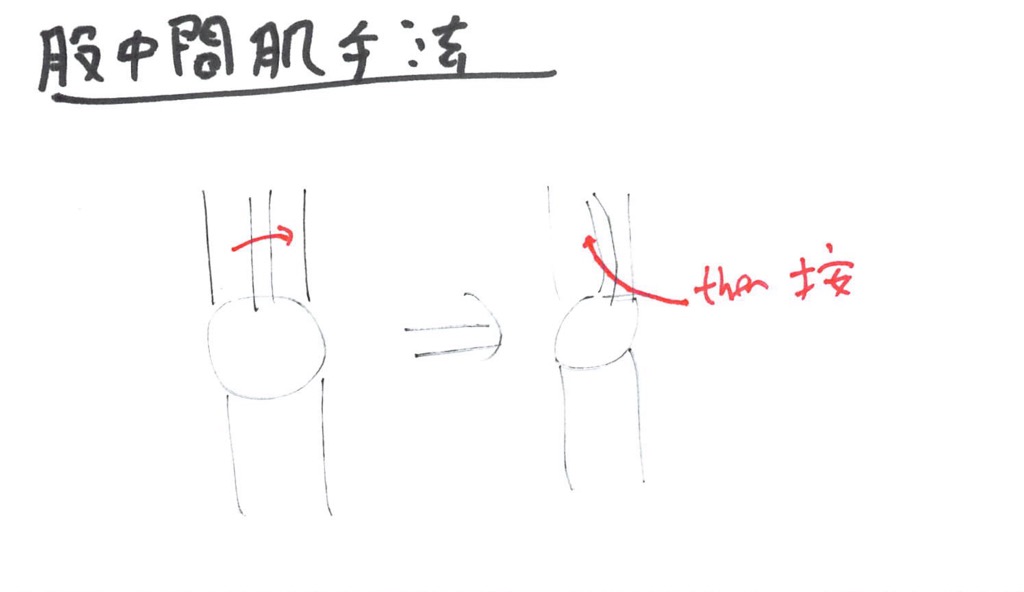 股中間肌手法
then 按